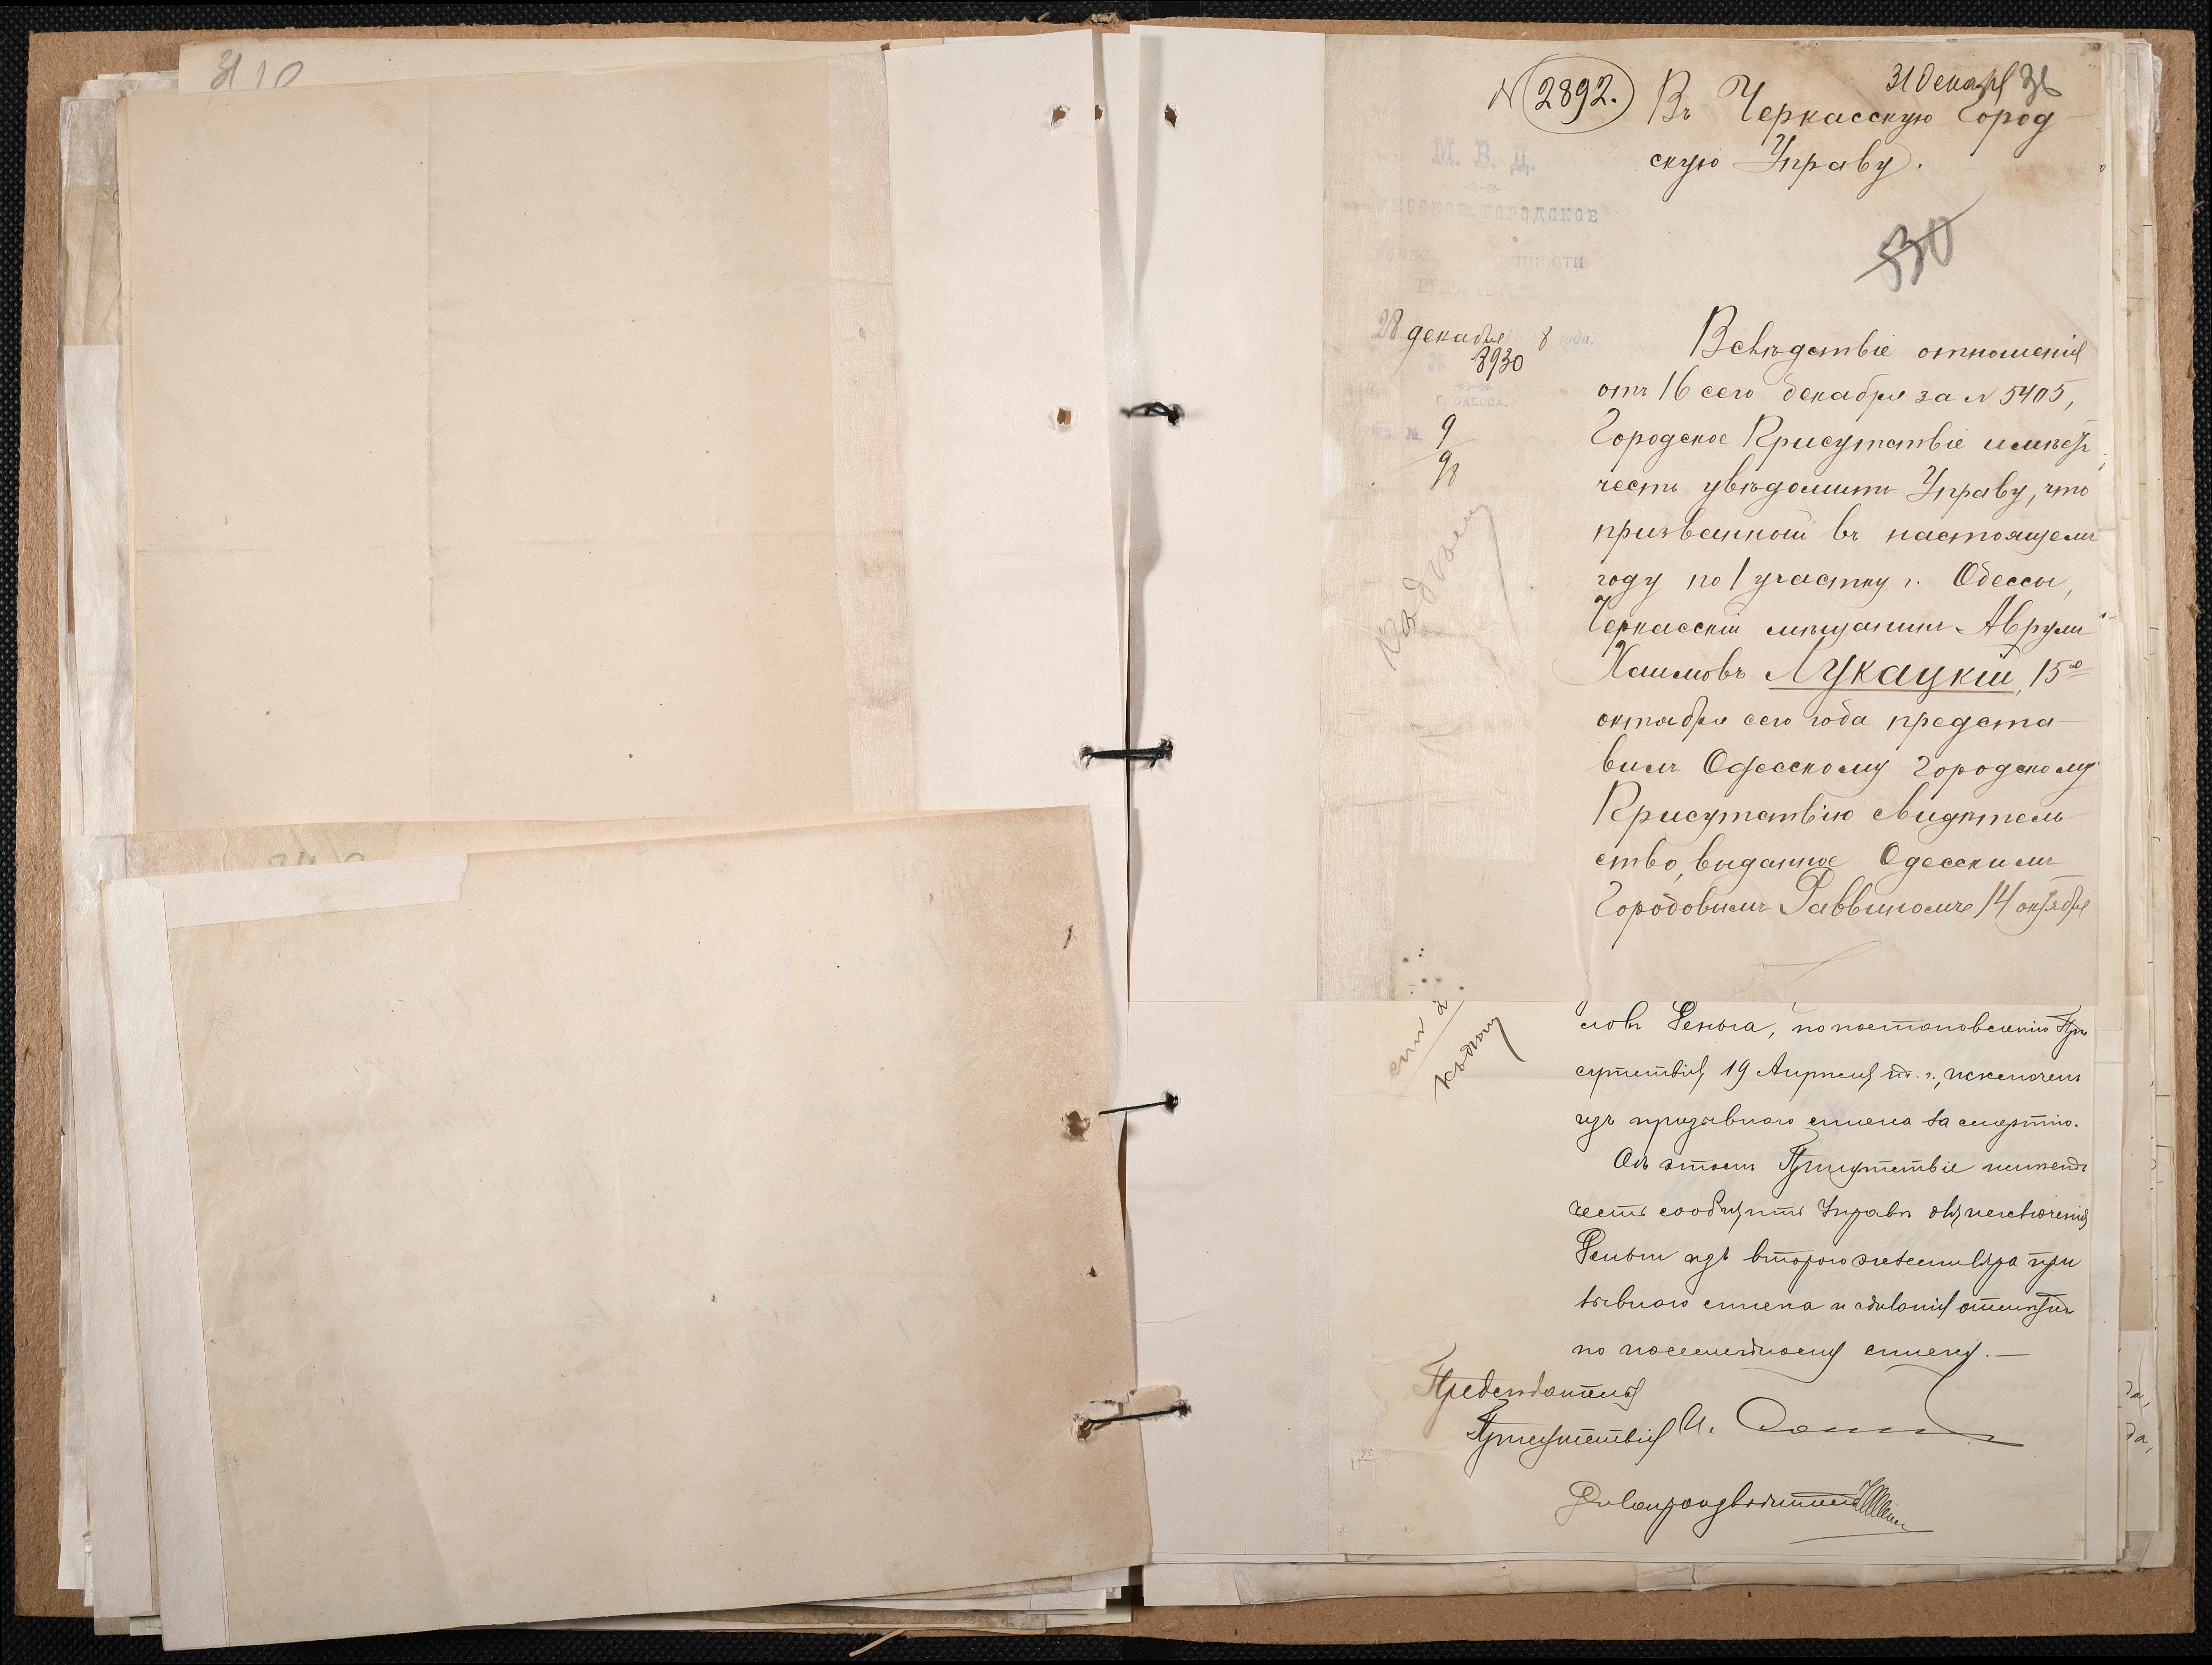 310
N 2892.
31 Декабря
Въ Черкасскую Город
скую Управу.
М. В. Д.
ГОРОДСКОЕ
530
28 декабря 8 года.
№ 8930
Г. ОДЕССА.
9
98
Вслѣдствіе отношенія
отъ 16 сего декабря за N 5405,
Городское Присутствіе имѣетъ
честь увѣдомить Управу, что
призванный въ настоящемъ
году по 1 участку г. Одессы,
Черкасскій мѣщанинъ Аврумъ
Хаимовъ Лукацкій, 15го
октября сего года предста
вилъ Одесскому Городскому
Присутствію свидѣтель
ство, выданное Одесскимъ
Городовымъ Раввиномъ 14 октября
къ дѣлу
къ дѣлу
по постановленію При
сутствія 19 Апрѣля г., исключенъ
изъ призывнаго списка за смертію.
Объ этомъ Присутствіе имѣетъ
честь сообщить Управѣ для исключенія
изъ втораго экземпляра при
зывнаго списка и сдѣланія отмѣтки
по посемейному списку. —
Предсѣдатель
Присутствія
Дѣлопроизводитель